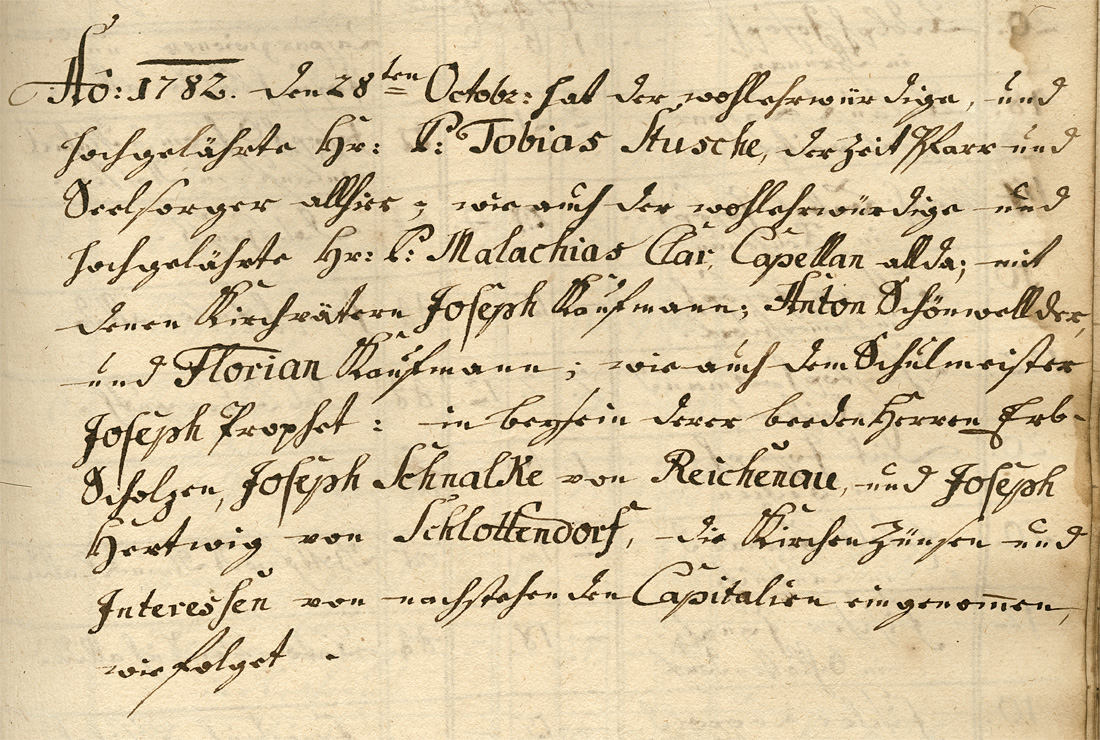 Aõ: 1782. den 28ten Octobr: hat der wohlehrwürdige, und
hochgelährte Hr: P: Tobias Stusche, der zeit Pfarr und
Seelsorger allhier; wie auch der wohlehrwürdige und
hochgelährte Hr: P: Malachias Clar, Capellan allda; mit
denen Kirchvätern Joseph Kaufmann; Anton Schönwellder,
und Florian Kaufmann; wie auch dem Schulmeister
Joseph Prophet: in beysein derer beeden Herren Erb-
Scholzen, Joseph Schnalke von Reichenau, und Joseph
Hertwig von Schlottendorf, die Kirchen Zünsen und
Interessen von nachstehenden Capitalien eingenom̅en,
wie folget.